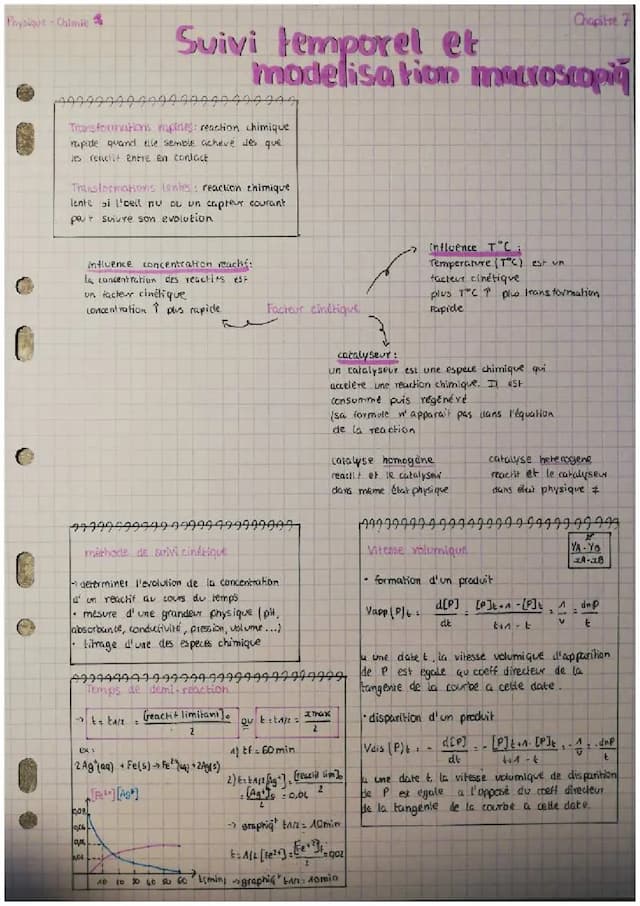 Physique - Chimie
Chapitre 7
Suivi temporel et
modelisation macroscopiq
Transformations rapides: reaction chimique
rapide quand elle semble achevé dès que
les reactif entre en contact
Transformations lentes: reaction chimique
lente si l'oeil nu ou un capteur courant
peut suivre son evolution
influence concentration reactif:
la concentration des reactifs est
un facteur cinétique
concentration ↑ plus rapide
Facteur cinétique
influence T°C:
Temperature (T°C) est un
facteur cinétique
plus T°C ↑ plus transformation
rapide
catalyseur:
un catalyseur est une espece chimique qui
accelère une reaction chimique. Il est
consummé puis régénéré
(sa formule n'apparait pas dans l'équation
de la reaction
catalyse homogène
reactif et le catalyseur
dans même état physique
catalyse heterogène
reactif et le catalyseur
dans état physique ≠
méthode de suivi cinétique
→ determiner l'evolution de la concentration
d'un reactif au cours du temps
• mesure d'une grandeur physique (pH,
absorbance, conductivité, pression, volume...)
• titrage d'une des especes chimique
Temps de demi-reaction
→ t = t1/2 = [reactif limitant]o / 2 ou t = t1/2 = xmax / 2
ex:
2Ag⁺(aq) + Fe(s) → Fe²⁺(aq) + 2Ag(s)
[Fe²⁺] [Ag⁺]
0,08
0,04
10 20 30 40 50 60 t(min)
1) tf = 60 min
2) t = t1/2 [Ag⁺] = [reactif lim]o / 2
= [Ag⁺]o / 2 = 0,04
→ graphiq⁺ t1/2 = 10 min
t = 1/2 [Fe²⁺] = [Fe²⁺]f / 2 = 0,02
→ graphiq⁺ t1/2 = 10 min
Vitesse volumique
YA - YB / xA - xB
• formation d'un produit
Vapp(P)t = d[P]/dt = [P]t+1 - [P]t / t+1 - t = 1/v = dnP/t
a une date t, la vitesse volumique d'apparition
de P est egale au coeff directeur de la
tangente de la courbe a cette date.
• disparition d'un produit
Vdis(P)t = - d[P]/dt = - [P]t+1 - [P]t / t+1 - t = - 1/v = - dnP/t
a une date t la vitesse volumique de disparition
de P est egale a l'opposé du coeff directeur
de la tangente de la courbe a cette date.